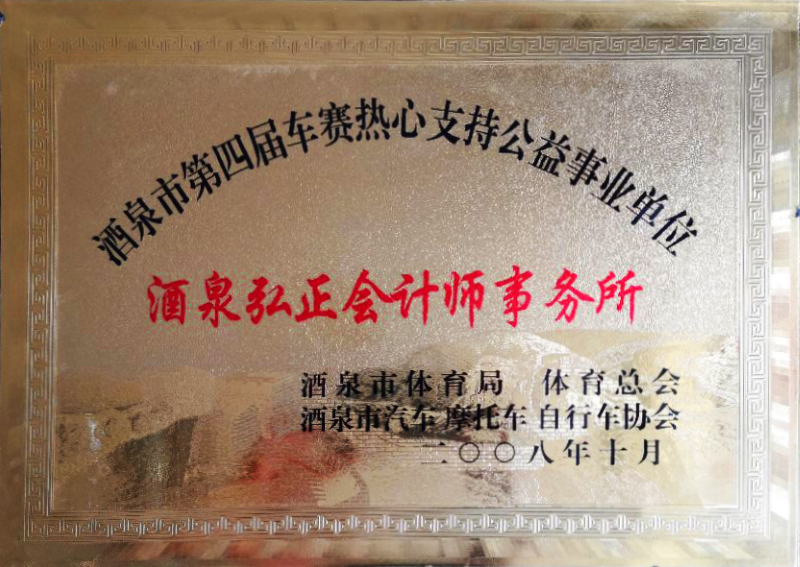 酒泉市第四届车赛热心支持公益事业单位
酒泉弘正会计师事务所
酒泉市体育局 体育总会
酒泉市汽车摩托车自行车协会
二〇〇八年十月